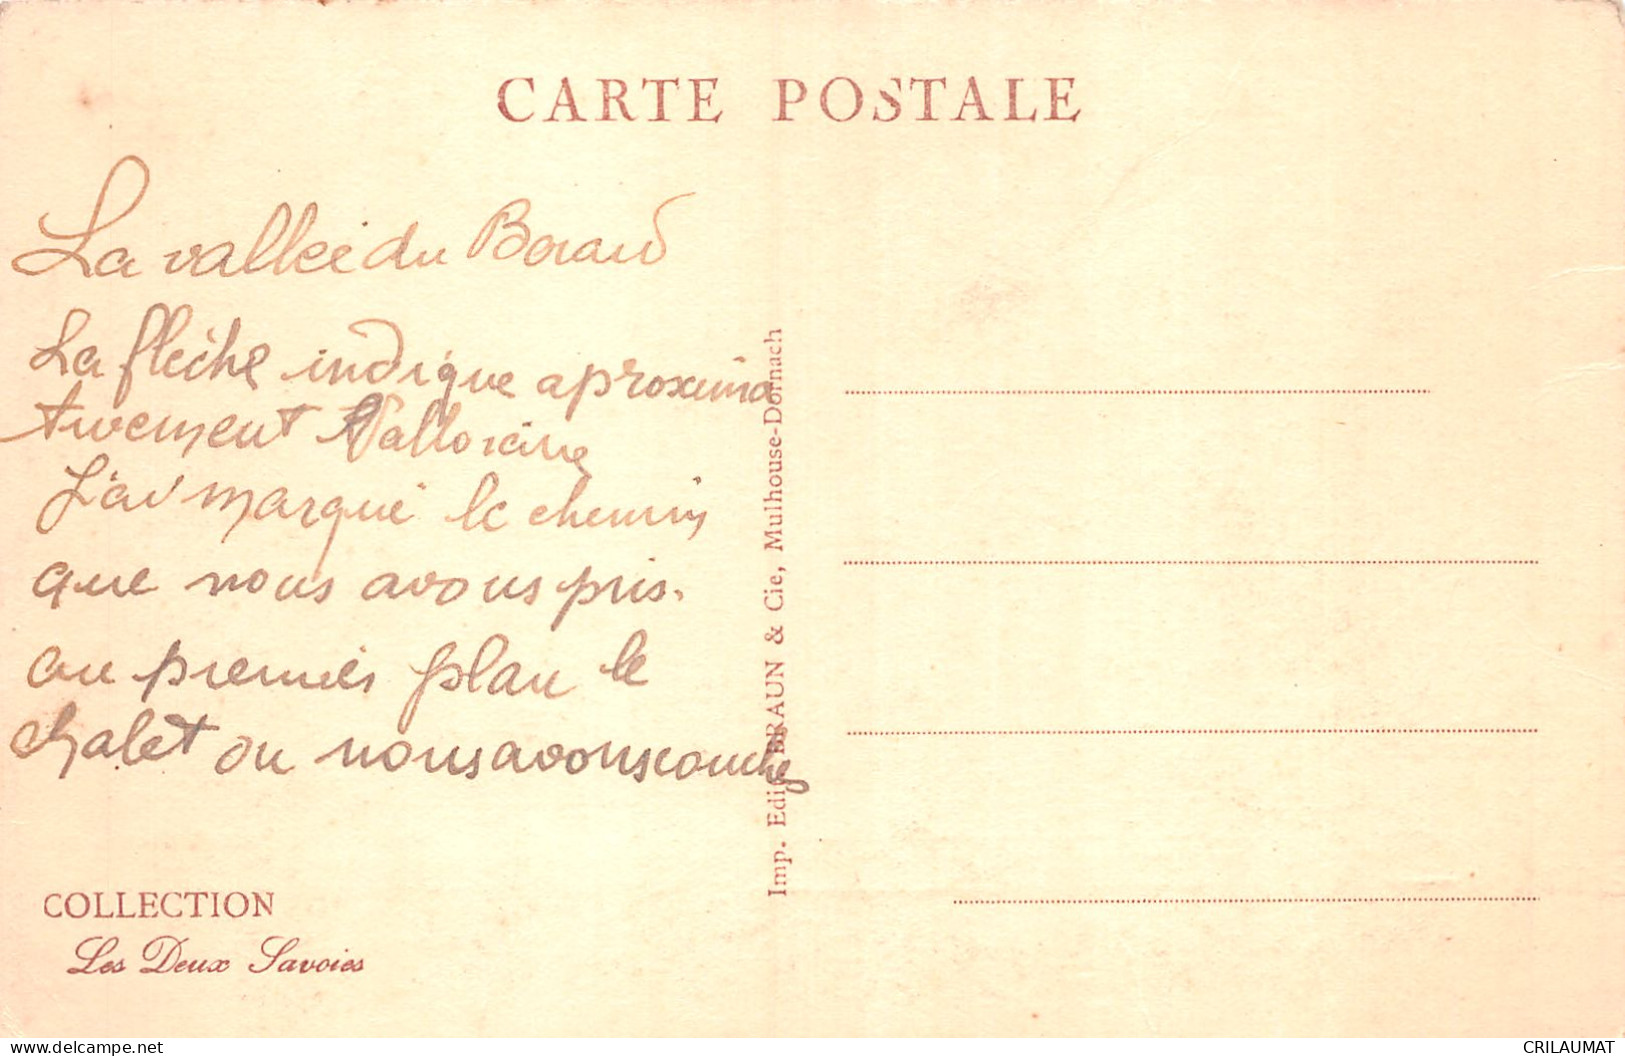 CARTE POSTALE
La vallée du Bérard
La flèche indique aproxima
tivement Vallorcine
J'ai marqué le chemin
que nous avons pris.
au premier plan le
chalet ou nous avons couché
Imp. Edit. BRAUN & Cie, Mulhouse-Dornach
COLLECTION
Les Deux Savoies
delcampe.net
CRILAUMAT